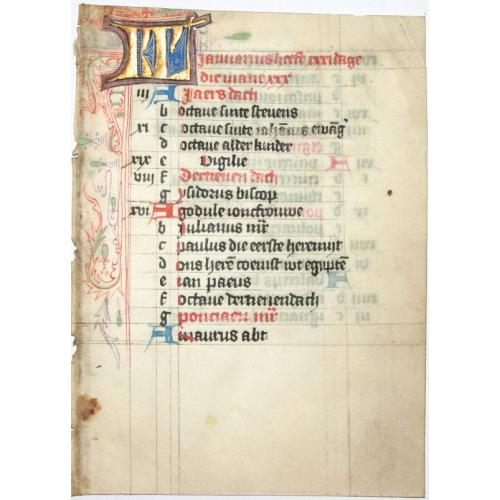 KL Januarius heeft xxxi dage
die mane xxx
iii A Jaers dach
b octave sinte stevens
xi c octave sinte iohānis ewāg
d octave alder kinder
xix e Vigilie
viii f Dertienen dach
g ysidorus biscop
xvi A godule ioncfrouwe
b iulianus mr̄
c paulus die eerste heremijt
d ons herē coemst wt egyptē
e ian paeus
f octave dertienendach
g ponciaen mr̄
A maurus abt